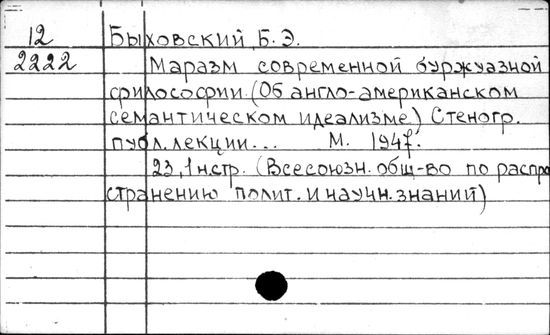 12
2222
Быховский, Б.Э.
Маразм современной буржуазной
философии. (Об англо-американском
семантическом идеализме) Стеногр.
публ. лекции... М. 1947.
23, 1 н.стр. (Всесоюзн. общ-во по распро
странению полит. и научн. знаний)